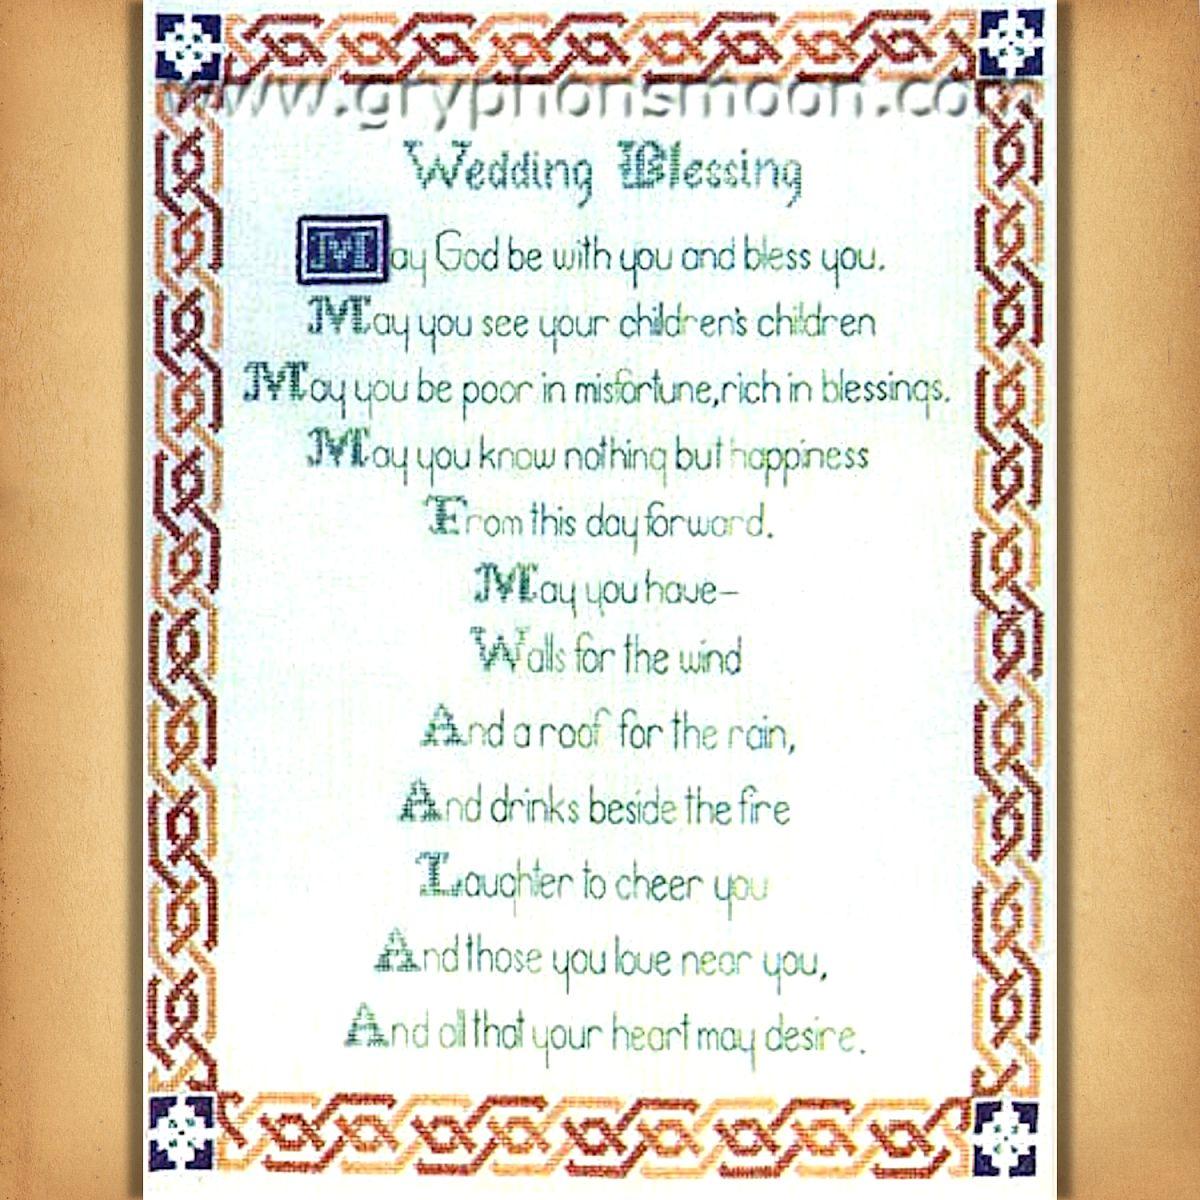 www.gryphonsmoon.co
Wedding Blessing
May God be with you and bless you.
May you see your children's children
May you be poor in misfortune, rich in blessings.
May you know nothing but happiness
From this day forward.
May you have-
Walls for the wind
And a roof for the rain,
And drinks beside the fire
Laughter to cheer you
And those you love near you,
And all that your heart may desire.